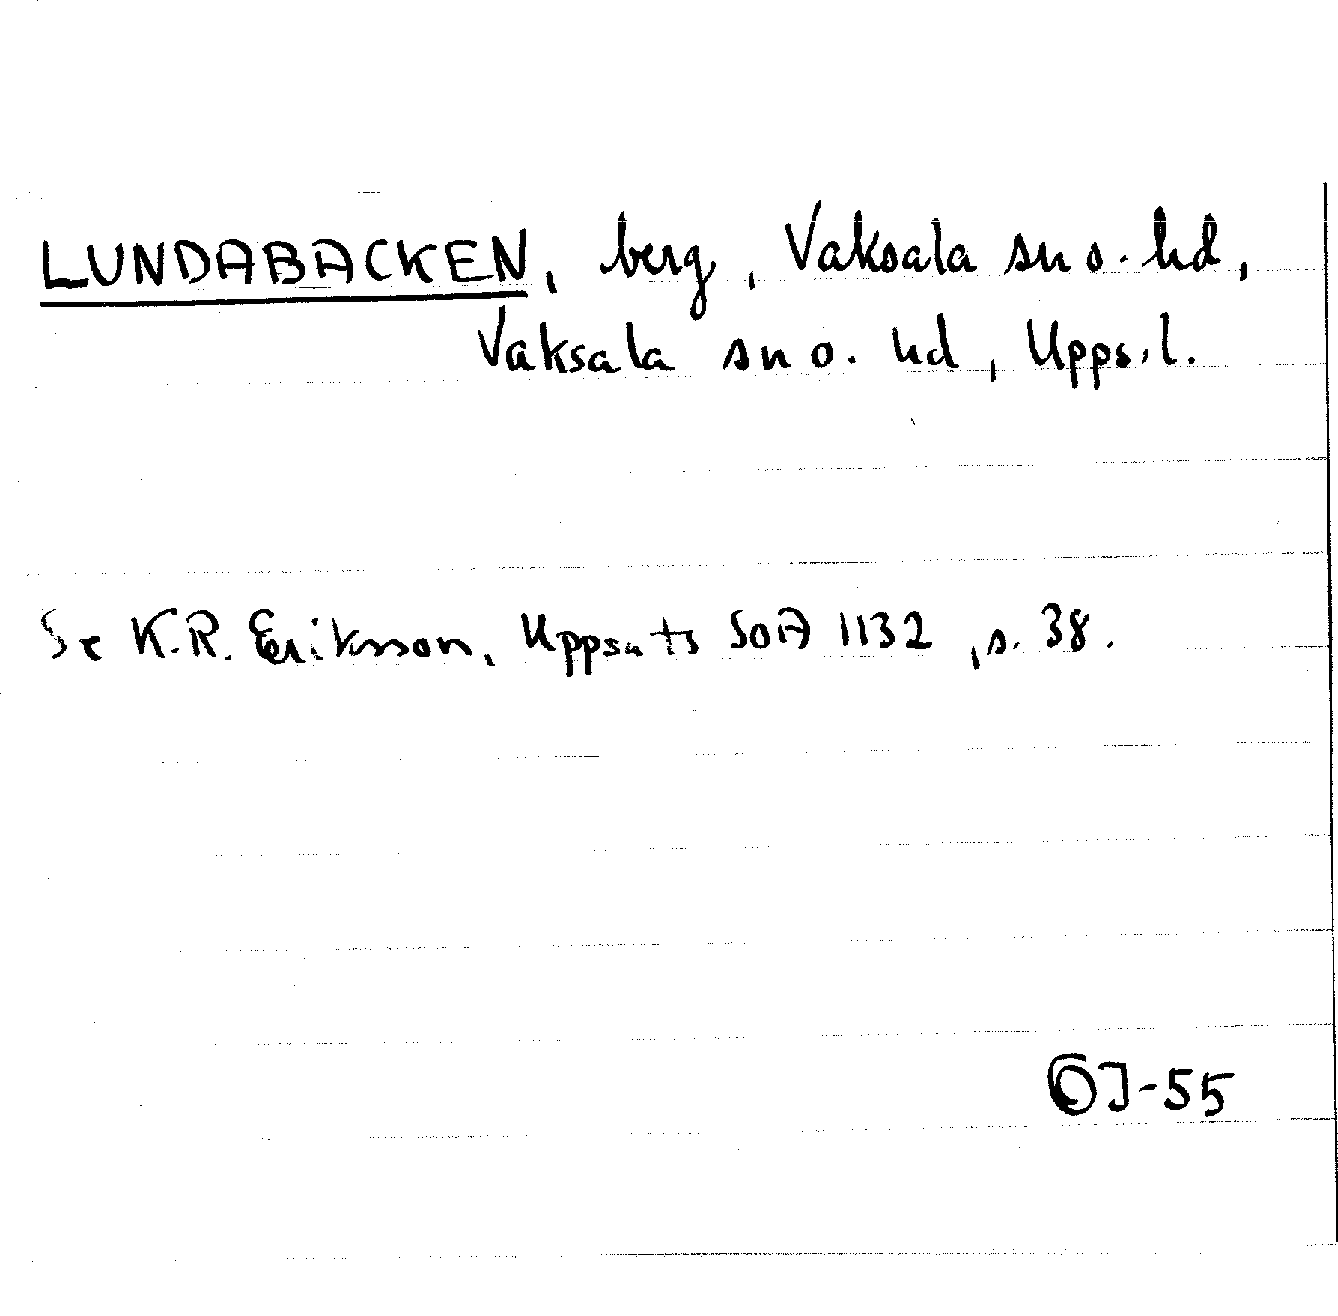 LUNDABACKEN, berg, Vaksala sn o. hd,
Vaksala sn o. hd, Upps.l.
Se K.R. Eriksson, Uppsats SOA 1132, s. 38.
OJ-55